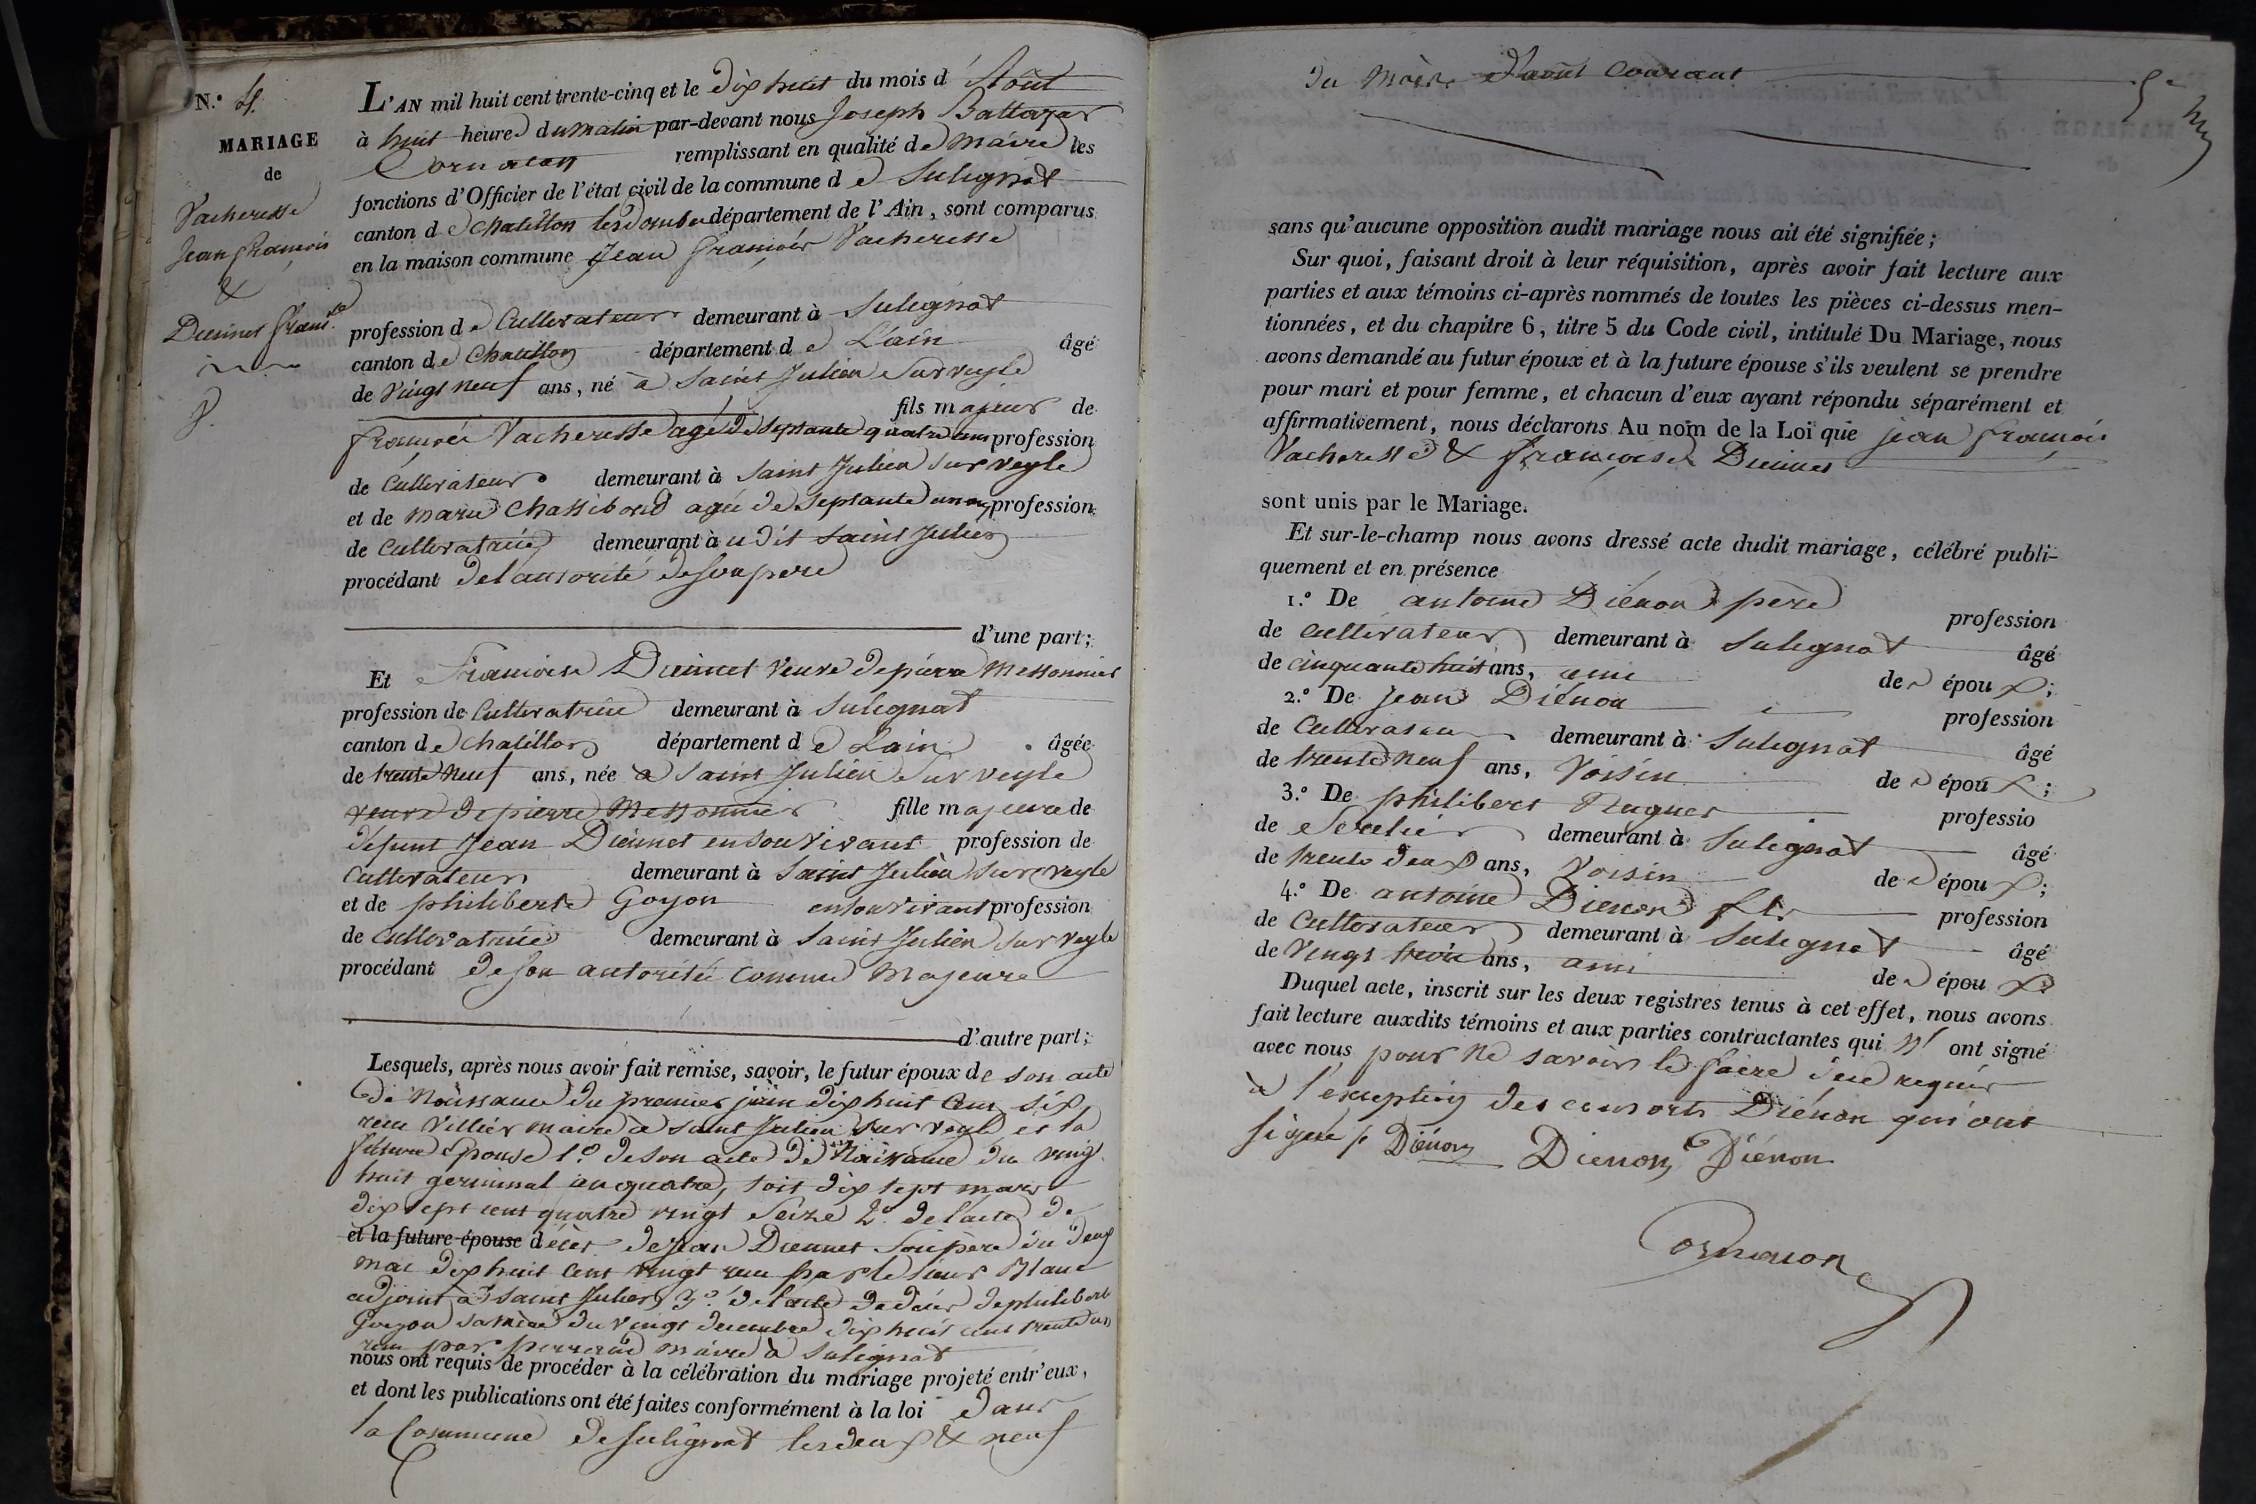 N.° 4.
MARIAGE
de
Vacheresse
Jean François
&
Diennet Franç.se
L'AN mil huit cent trente-cinq et le dix huit du mois d'Août
à huit heures du matin par-devant nous Joseph Battazar
Cornaton remplissant en qualité de maire les
fonctions d'Officier de l'état civil de la commune de Sulignat
canton de chatillon les Dombes département de l'Ain, sont comparus
en la maison commune Jean François Vacheresse
profession de Cultivateur demeurant à Sulignat
canton de Chatillon département de L'ain âgé
de vingt neuf ans, né à Saint Julien Sur veyle
fils majeur de
François Vacheresse agé de septante quatre ans profession
de Cultivateur demeurant à Saint Julien sur veyle
et de marie Chassiboud agée de Septante un ans profession
de Cultivatrice demeurant à u dit Saint Julien
procédant de l'autorité de son pere
d'une part;
Et Francoise Diennet veuve de pierre Messonnier
profession de Cultivatrice demeurant à Sulignat
canton de chatillon département de Lain âgée
de trente neuf ans, née à Saint Julien Sur veyle
veuve de pierre Messonnier fille majeure de
défunt Jean Diennet en son vivant profession de
Cultivateur demeurant à Saint Julien sur veyle
et de philiberte Goyon en son vivant profession
de cultivatrice demeurant à Saint Julien sur veyle
procédant de son autorité comme majeure
d'autre part;
Lesquels, après nous avoir fait remise, savoir, le futur époux de son acte
de Naissance du premier juin dix huit cent six,
reçu Villier maire à Saint Julien sur veyle et la
future Epouse 1.° de son acte de Naissance du vingt
huit germinal an quatre, soit dix sept mars
dix sept cent quatre vingt seize 2.° de l'acte de
et la future épouse décès de Jean Diennet Son père du deux
mai dix huit cent vingt reçu par le sieur Blanc
adjoint à Saint Julien 3.° de l'acte de décès de philiberte
Goyon sa mère du vingt decembre dix huit cent trente un
reçu par perreaud maire à Sulignat
nous ont requis de procéder à la célébration du mariage projeté entr'eux,
et dont les publications ont été faites conformément à la loi dans
la Commune de Sulignat les deux & neuf
du mois d'août courant
sans qu'aucune opposition audit mariage nous ait été signifiée;
Sur quoi, faisant droit à leur réquisition, après avoir fait lecture aux
parties et aux témoins ci-après nommés de toutes les pièces ci-dessus men-
tionnées, et du chapitre 6, titre 5 du Code civil, intitulé Du Mariage, nous
avons demandé au futur époux et à la future épouse s'ils veulent se prendre
pour mari et pour femme, et chacun d'eux ayant répondu séparément et
affirmativement, nous déclarons Au nom de la Loi que jean françois
Vacheresse & françoise Diennet
sont unis par le Mariage.
Et sur-le-champ nous avons dressé acte dudit mariage, célébré publi-
quement et en présence
1.° De antoine Diénon père profession
de cultivateur demeurant à Sulignat âgé
de cinquante huit ans, ami de époux;
2.° De Jean Diénon profession
de Cultivateur demeurant à Sulignat âgé
de trente neuf ans, Voisin de époux;
3.° De philibert Huguet professio
de Sellier demeurant à Sulignat âgé
de trente deux ans, Voisin de époux;
4.° De antoine Dienon fils profession
de Cultivateur demeurant à Sulignat âgé
de vingt trois ans, ami de époux
Duquel acte, inscrit sur les deux registres tenus à cet effet, nous avons
fait lecture auxdits témoins et aux parties contractantes qui n' ont signé
avec nous pour ne savoir le faire de ce requis
à l'exception des consorts Diénon qui ont
signé / Diénon Dienon Diénon
Cornaton